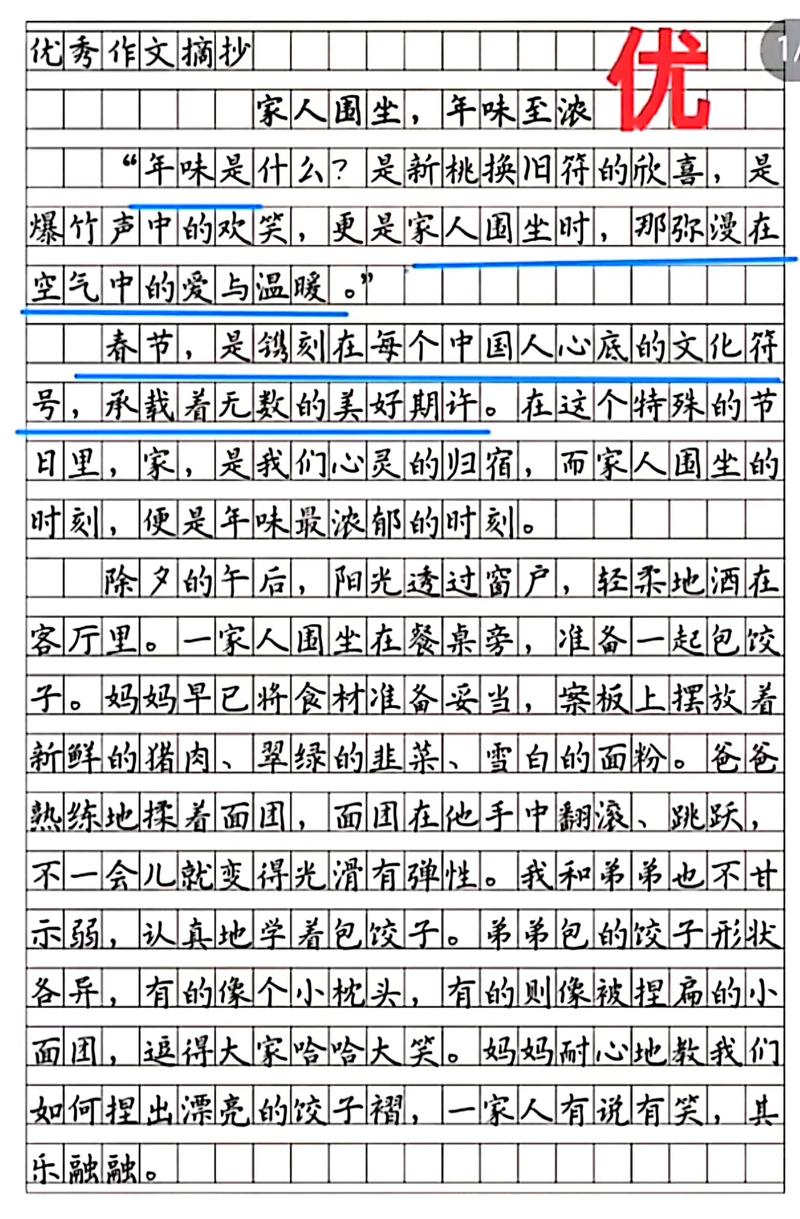 优秀作文摘抄
优
1/
家人围坐，年味至浓
“年味是什么？是新桃换旧符的欣喜，是
爆竹声中的欢笑，更是家人围坐时，那弥漫在
空气中的爱与温暖。”
春节，是镌刻在每个中国人心底的文化符
号，承载着无数的美好期许。在这个特殊的节
日里，家，是我们心灵的归宿，而家人围坐的
时刻，便是年味最浓郁的时刻。
除夕的午后，阳光透过窗户，轻柔地洒在
客厅里。一家人围坐在餐桌旁，准备一起包饺
子。妈妈早已将食材准备妥当，案板上摆放着
新鲜的猪肉、翠绿的韭菜、雪白的面粉。爸爸
熟练地揉着面团，面团在他手中翻滚、跳跃，
不一会儿就变得光滑有弹性。我和弟弟也不甘
示弱，认真地学着包饺子。弟弟包的饺子形状
各异，有的像个小枕头，有的则像被捏扁的小
面团，逗得大家哈哈大笑。妈妈耐心地教我们
如何捏出漂亮的饺子褶，一家人有说有笑，其
乐融融。